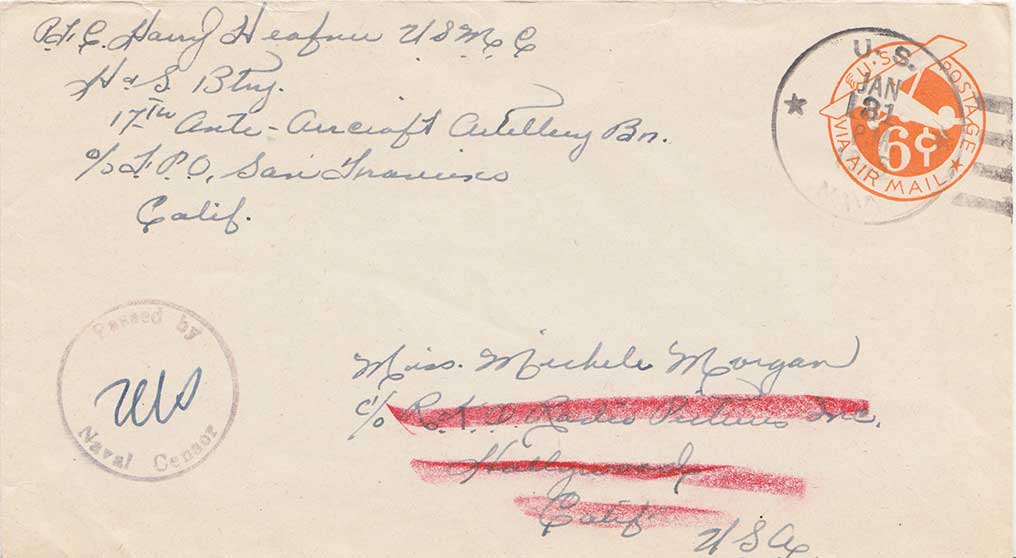 P.F.C. Harry Heafner U S M C
H & S. Btry.
17TH Ante-Aircraft Artillery Bn.
c/o F.P.O, San Francisco
Calif.
U. S.
JAN
31
U.S. POSTAGE
6¢
VIA AIR MAIL
Passed by
Naval Censor
Miss. Michele Morgan
c/o R.K.O. Radio Pictures Inc.
Hollywood,
Calif
USA